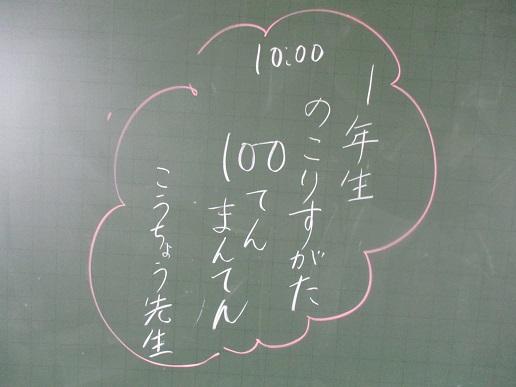 10:00
1年生
のこりすがた
100てん
まんてん
こうちょう先生